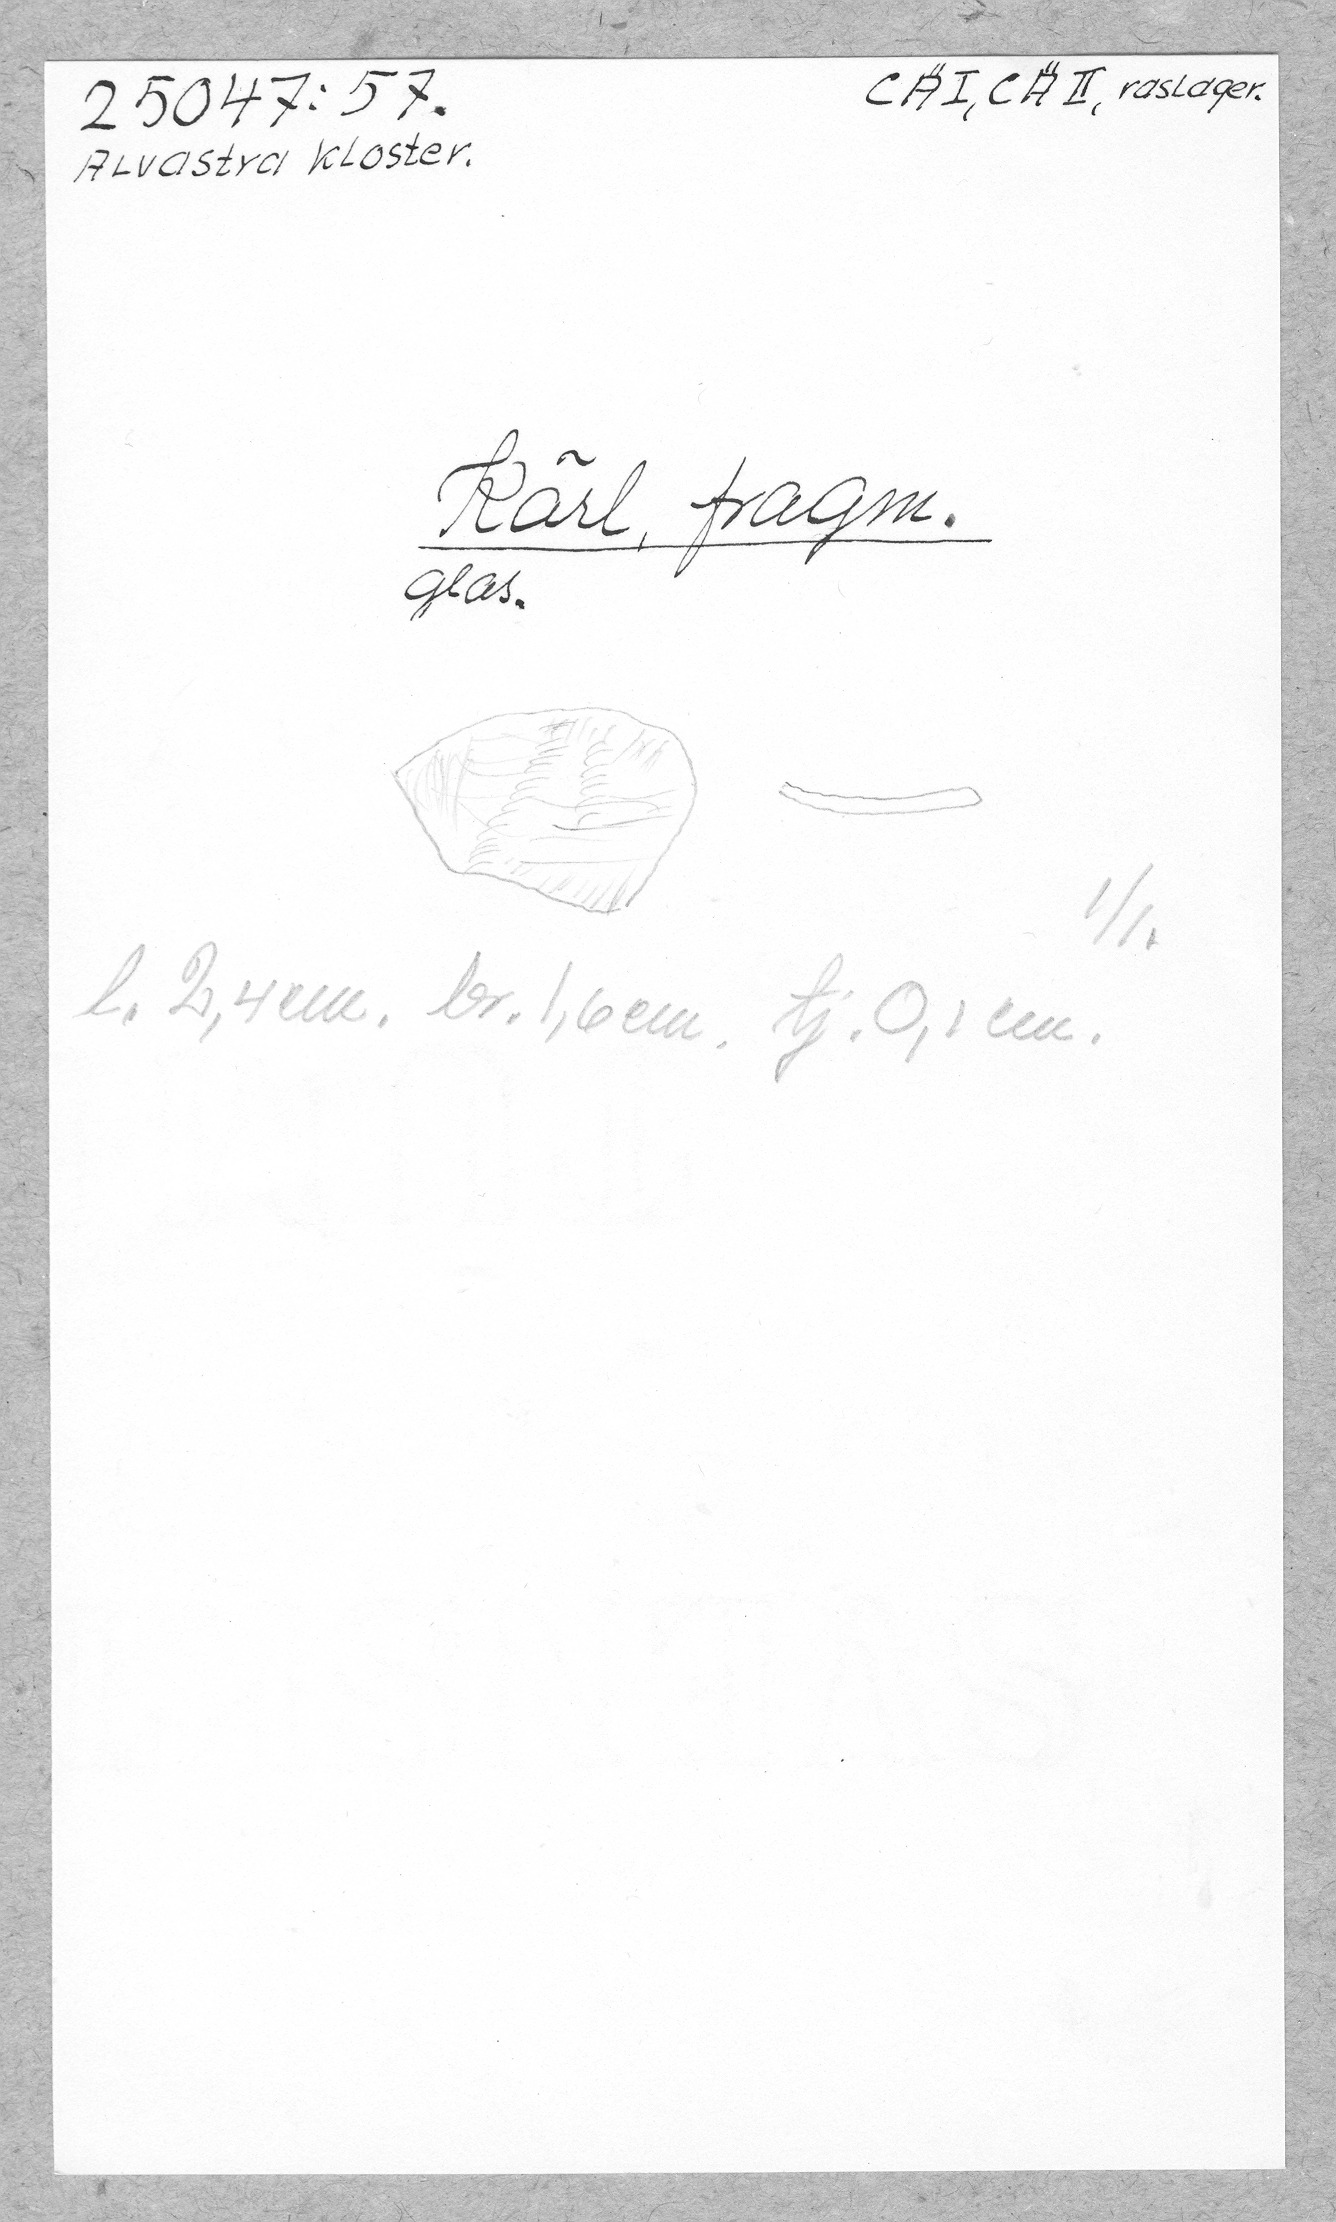 25047:57.
Alvastra kloster.
CÄI, CÄII, raslager.
Kärl, fragm.
glas.
1/1.
l. 2,4 cm. br. 1,6 cm. tj. 0,1 cm.